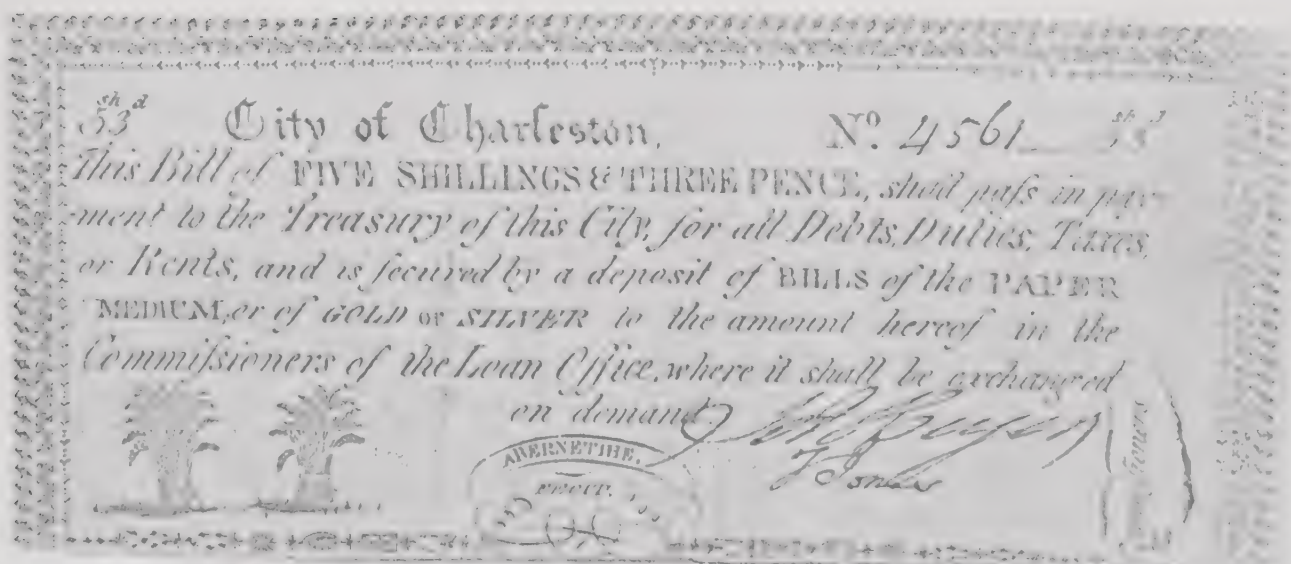 sh d
5 3 City of Charleston. No. 4561 sh d
5 3
This Bill of FIVE SHILLINGS & THREE PENCE, shall paſs in pay-
ment to the Treasury of this City, for all Debts, Duties, Taxes,
or Rents, and is ſecured by a deposit of BILLS of the PAPER
MEDIUM, or of GOLD or SILVER to the amount hereof in the
Commiſsioners of the Loan Office, where it shall be exchanged
on demand.
T Jones
ABERNETHIE,
FECIT.